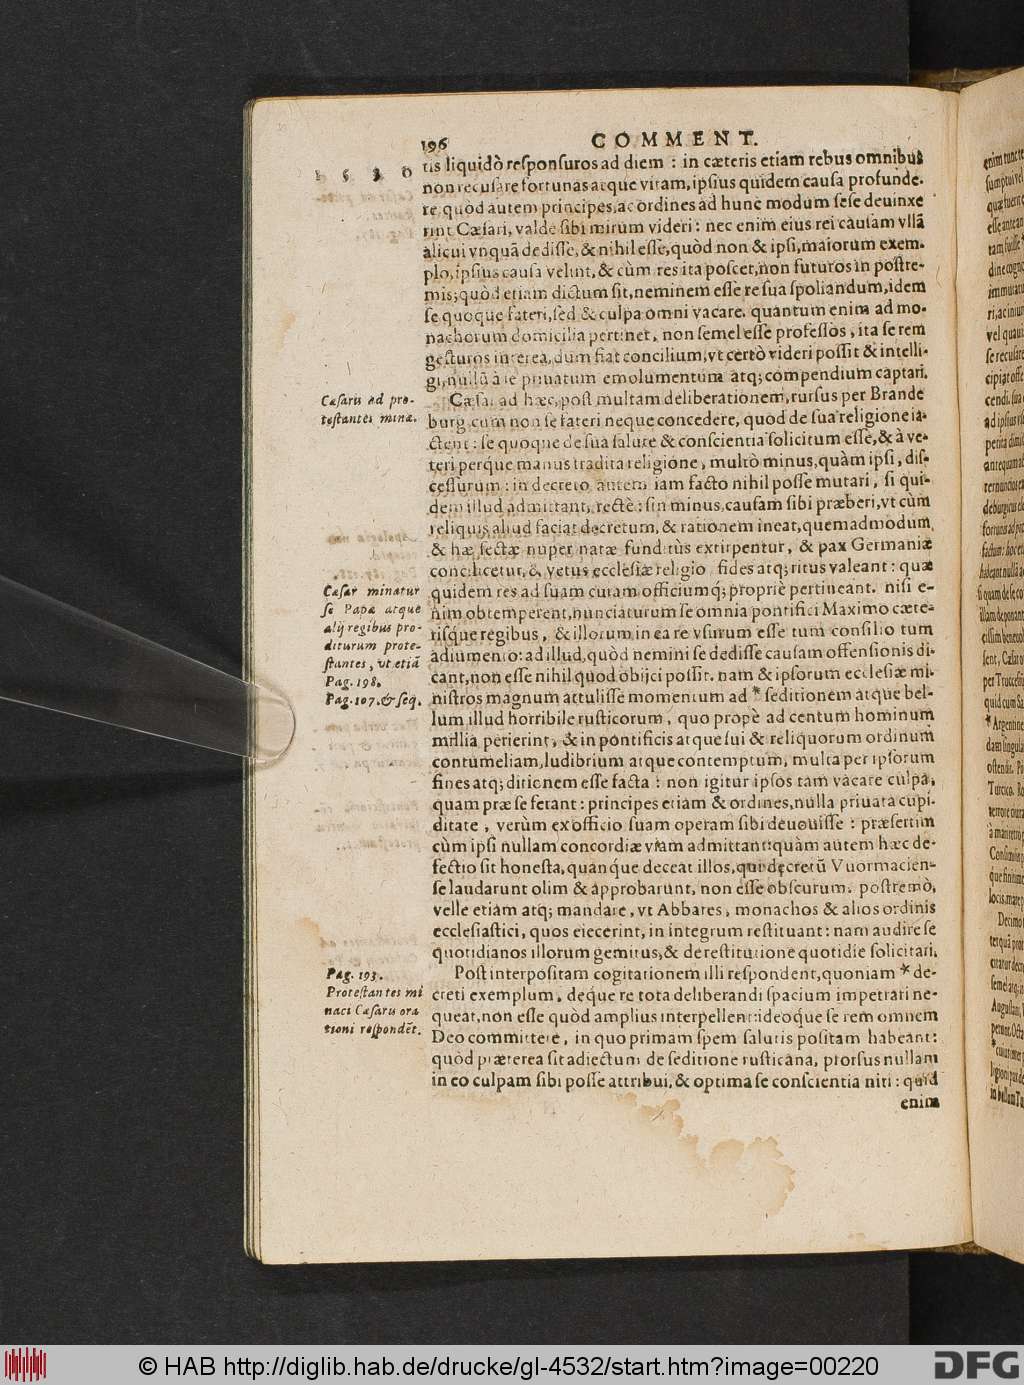 196 COMMENT.
1530
tis liquidò responsuros ad diem : in cæteris etiam rebus omnibus
non recusare fortunas atque vitam, ipsius quidem causa profunde-
re, quòd autem principes, ac ordines ad hunc modum sese deuinxe
rint Cæsari, valde sibi mirum videri : nec enim eius rei causam vllã
alicui vnquã dedisse, & nihil esse, quòd non & ipsi, maiorum exem-
plo, ipsius causa velint, & cùm res ita poscet, non futuros in postre-
mis; quòd etiam dictum sit, neminem esse re sua spoliandum, idem
se quoque fateri, sed & culpa omni vacare. quantum enim ad mo-
nachorum domicilia pertinet, non semel esse professos, ita se rem
gesturos interea, dum fiat concilium, vt certò videri possit & intelli-
gi, nullũ à se priuatum emolumentum atq; compendium captari.
Cæsar ad hæc, post multam deliberationem, rursus per Brande
burg. cum non se fateri neque concedere, quod de sua religione ia-
ctent : se quoque de sua salute & conscientia solicitum esse, & à ve-
teri perque manus tradita religione, multò minus, quàm ipsi, dis-
cessurum : in decreto autem iam facto nihil posse mutari, si qui-
dem illud admittant, rectè : sin minus, causam sibi præberi, vt cùm
reliquis aliud faciat decretum, & rationem ineat, quemadmodum
& hæ sectæ nuper natæ funditùs extirpentur, & pax Germaniæ
concilietur, & vetus ecclesiæ religio fides atq; ritus valeant : quæ
quidem res ad suam curam officiumq́; propriè pertineant. nisi e-
nim obtemperent, nunciaturum se omnia pontifici Maximo cæte-
risq́ue regibus, & illorum in ea re vsurum esse tum consilio tum
adiumento: ad illud, quòd nemini se dedisse causam offensionis di-
cant, non esse nihil quod obijci possit. nam & ipsorum ecclesiæ mi-
nistros magnum attulisse momentum ad * seditionem atque bel-
lum illud horribile rusticorum, quo propè ad centum hominum
millia perierint, & in pontificis atque sui & reliquorum ordinum
contumeliam, ludibrium atque contemptum, multa per ipsorum
fines atq; ditionem esse facta : non igitur ipsos tam vacare culpa,
quam præ se ferant : principes etiam & ordines, nulla priuata cupi-
ditate, verùm ex officio suam operam sibi deuouisse : præsertim
cùm ipsi nullam concordiæ viam admittant: quàm autem hæc de-
fectio sit honesta, quanque deceat illos, qui decretũ Vuormacien-
se laudarunt olim & approbarunt, non esse obscurum. postremò,
velle etiam atq; mandare, vt Abbates, monachos & alios ordinis
ecclesiastici, quos eiecerint, in integrum restituant: nam audire se
quotidianos illorum gemitus, & de restitutione quotidie solicitari.
Post interpositam cogitationem illi respondent, quoniam * de-
creti exemplum, deque re tota deliberandi spacium impetrari ne-
queat, non esse quòd amplius interpellent: ideoque se rem omnem
Deo committere, in quo primam spem salutis positam habeant:
quòd præterea sit adiectum de seditione rusticana, prorsus nullam
in eo culpam sibi posse attribui, & optima se conscientia niti : quid
enim
Cæsaris ad pro-
testantes minæ.
Cæsar minatur
se Papæ atque
alij regibus pro-
diturum prote-
stantes, vt etiã
Pag. 198.
Pag. 107. & seq.
Pag. 193.
Protestantes mi
naci Cæsaris ora
tioni respondẽt.
© HAB http://diglib.hab.de/drucke/gl-4532/start.htm?image=00220
DFG